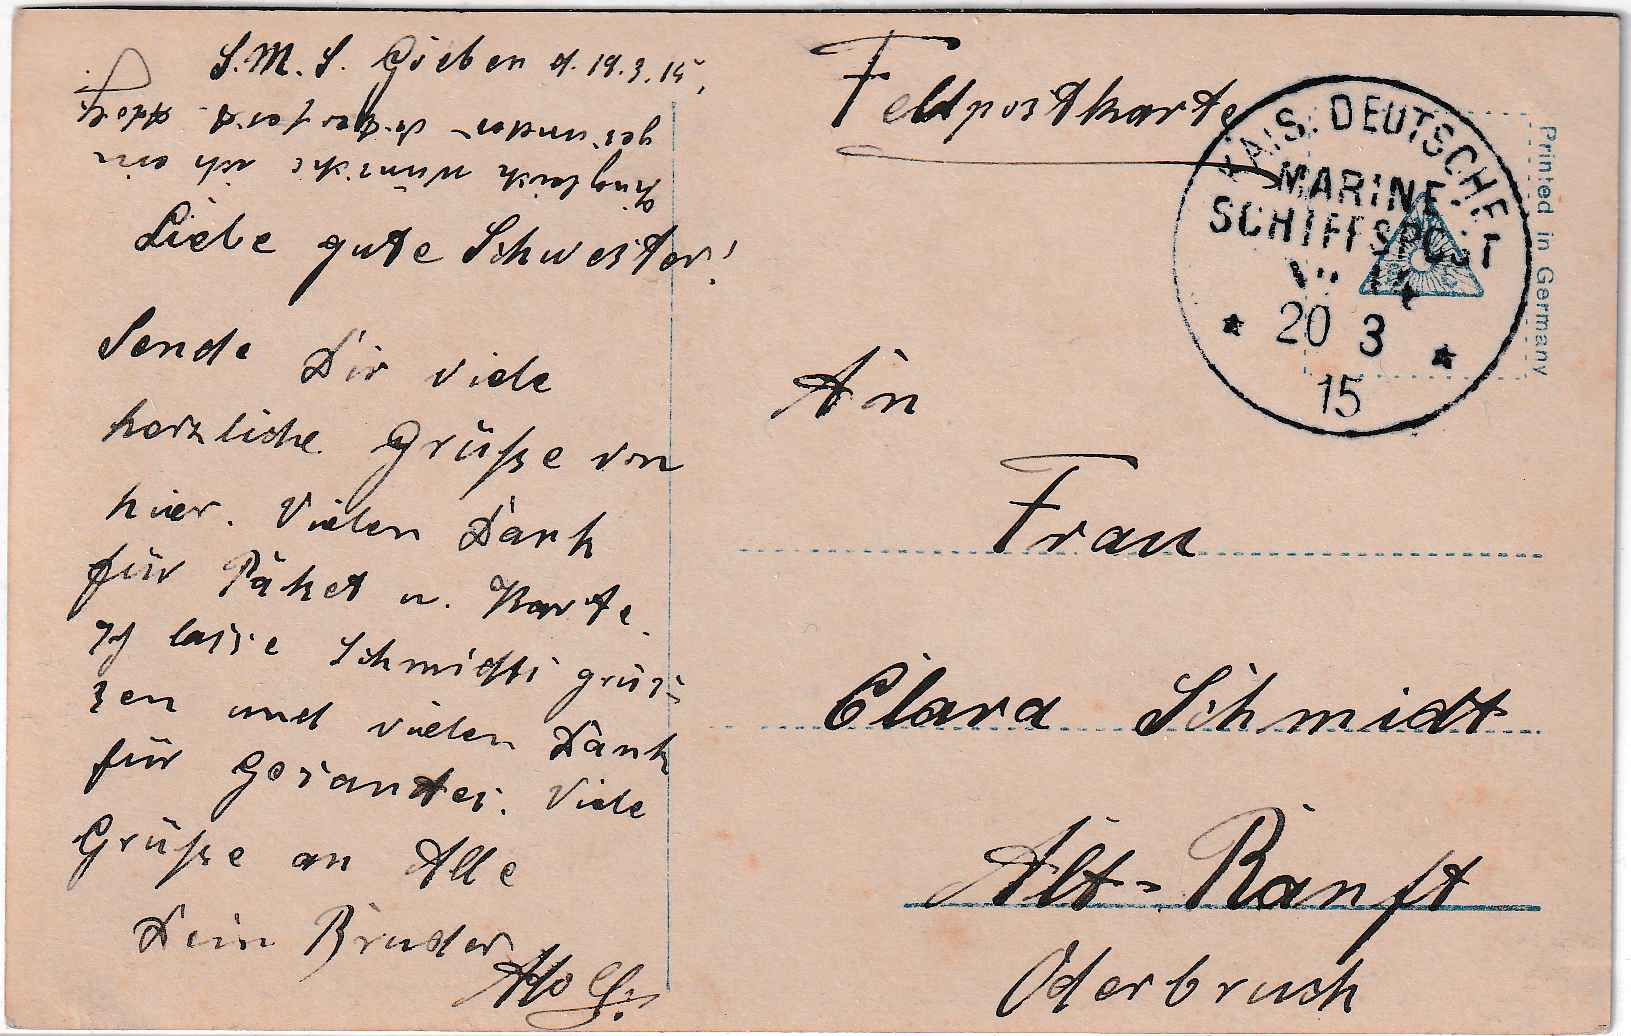 S.M.S. Goeben d. 19.3.15,
Zugleich wünsche ich ein
gesundes
Liebe gute Schwester!
Sende Dir viele
herzliche Grüße von
hier. Vielen Dank
für Paket u. Karte.
Ich lasse Schmidts grüs-
sen und vielen Dank
für Gesantes. Viele
Grüße an Alle
Dein Bruder
Adolf.
Feldpostkarte
KAIS. DEUTSCHE
MARINE
SCHIFFSPOST
20 3
15
Printed in Germany
An
Frau
Clara Schmidt
Alt-Ranft
Oderbruch